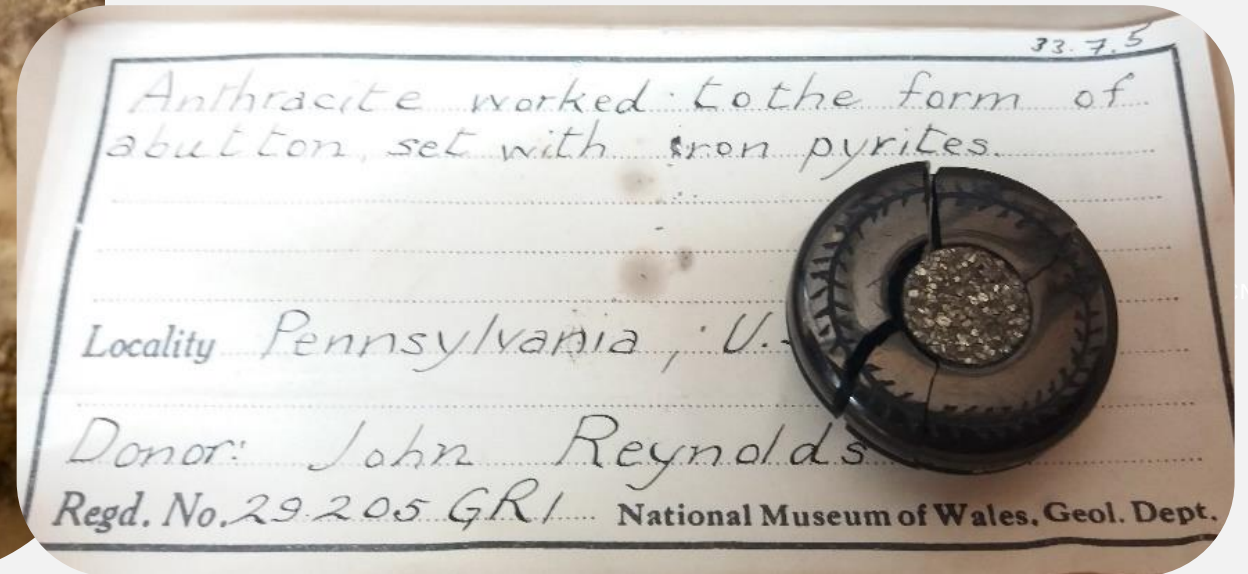 33.7.5
Anthracite worked to the form of
a button, set with iron pyrites.
Locality Pennsylvania, U.
Donor: John Reynolds
Regd. No. 29.205 GR1 National Museum of Wales. Geol. Dept.